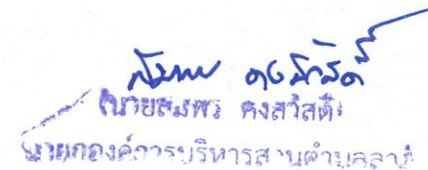 สมพร คงสวัสดิ์
(นายสมพร คงสวัสดิ์)
นายกองค์การบริหารส่วนตำบล